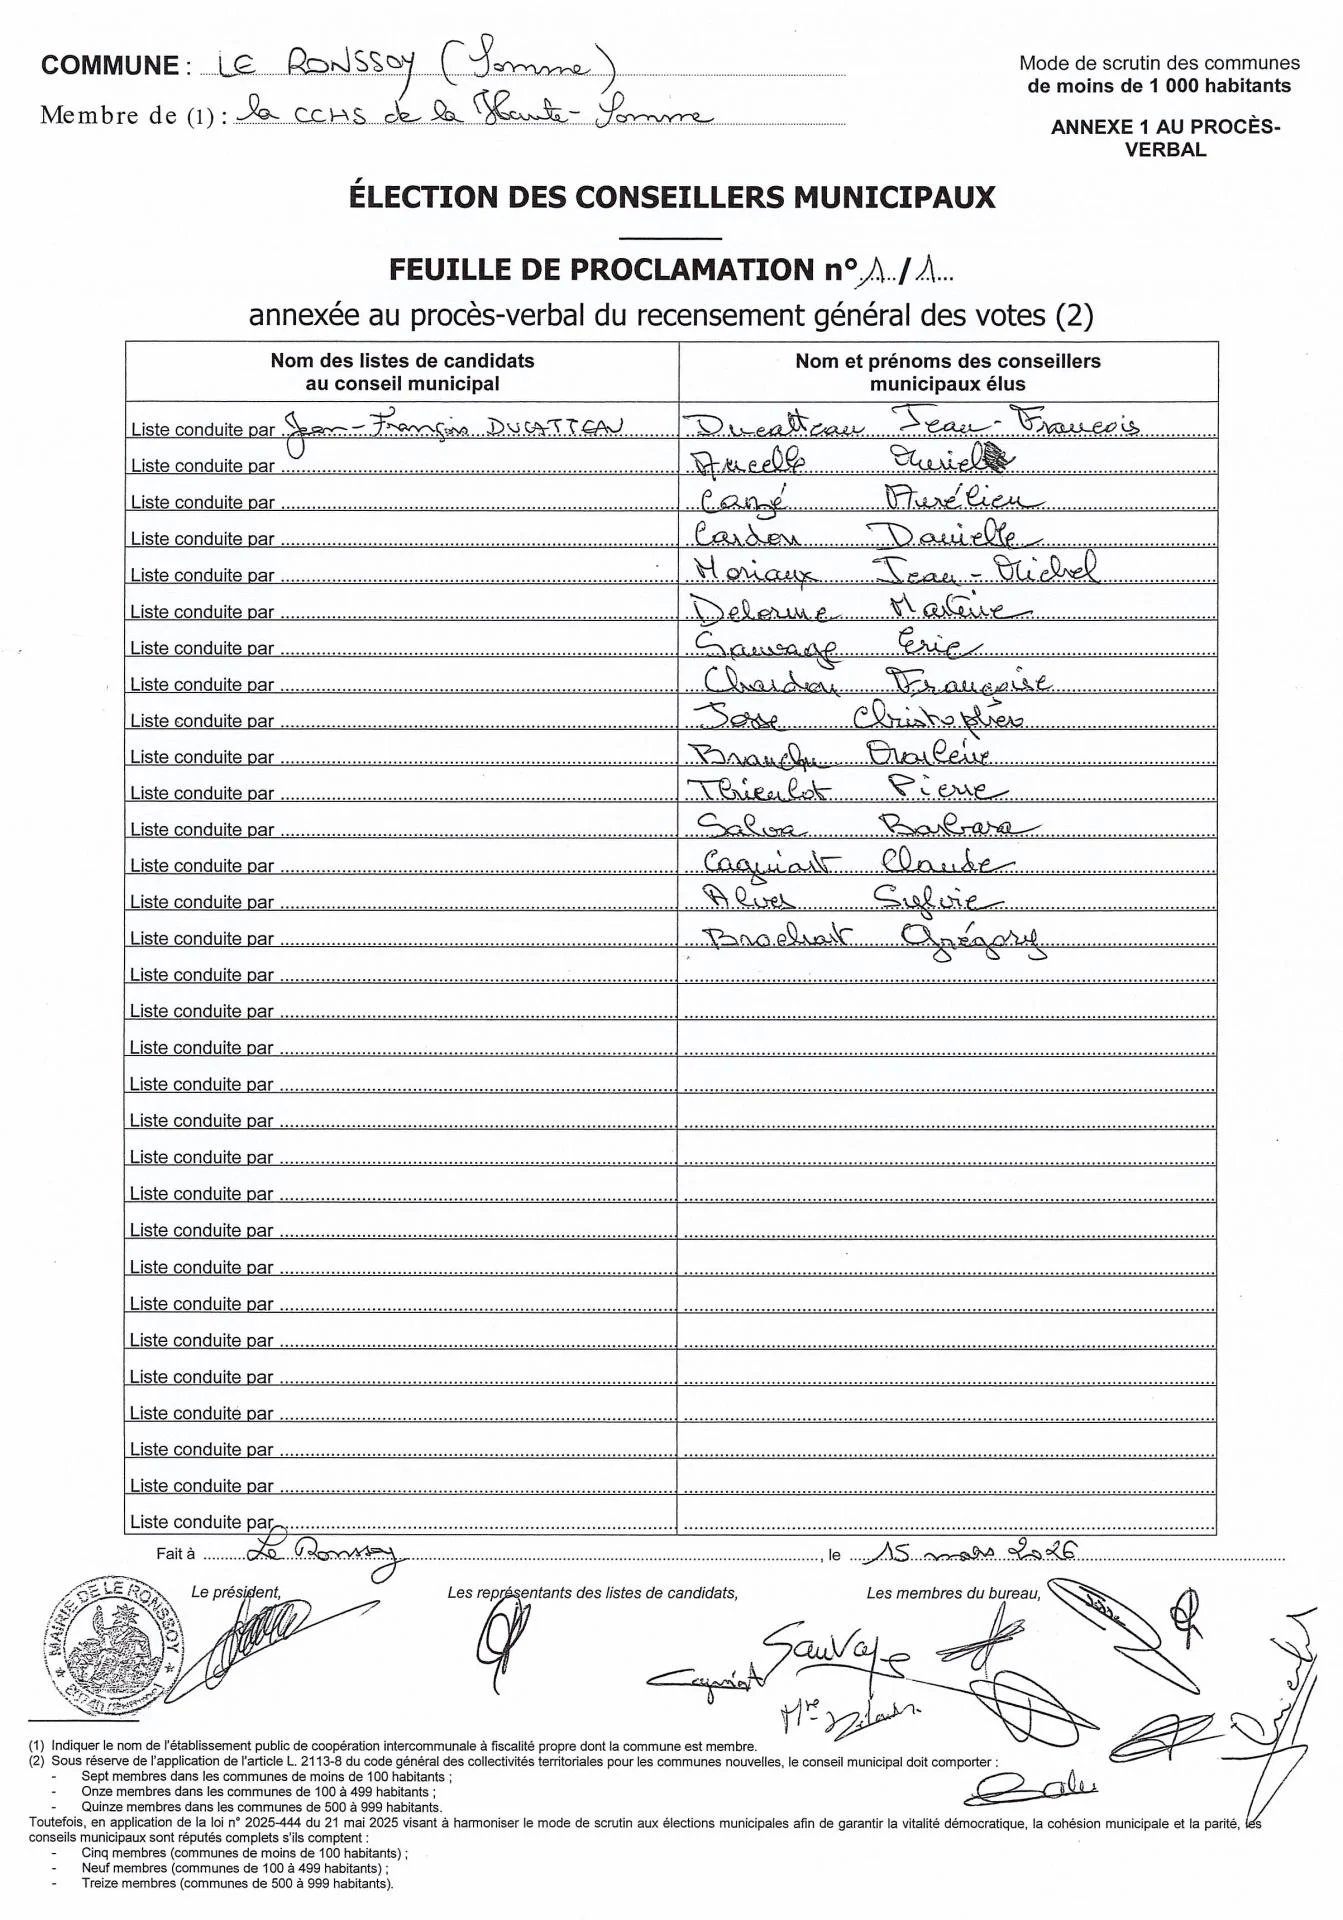 COMMUNE : LE RONSSOY (Somme)
Mode de scrutin des communes
de moins de 1 000 habitants
Membre de (1) : la CCHS de la Haute-Somme
ANNEXE 1 AU PROCÈS-
VERBAL
ÉLECTION DES CONSEILLERS MUNICIPAUX
FEUILLE DE PROCLAMATION n° 1 / 1
annexée au procès-verbal du recensement général des votes (2)
Nom des listes de candidats
au conseil municipal
Nom et prénoms des conseillers
municipaux élus
Liste conduite par Jean-François DUCATTEAU Ducatteau Jean-François
Liste conduite par Muriel
Liste conduite par Canzé Aurélien
Liste conduite par Cardon Danielle
Liste conduite par Moriaux Jean-Michel
Liste conduite par Delorme Martine
Liste conduite par Sauvage Eric
Liste conduite par Chardon Françoise
Liste conduite par Josse
Liste conduite par
Liste conduite par Pierre
Liste conduite par Salva Barbara
Liste conduite par Caquiart Claude
Liste conduite par Alves Sylvie
Liste conduite par Brochart Grégory
Liste conduite par
Liste conduite par
Liste conduite par
Liste conduite par
Liste conduite par
Liste conduite par
Liste conduite par
Liste conduite par
Liste conduite par
Liste conduite par
Liste conduite par
Liste conduite par
Liste conduite par
Liste conduite par
Liste conduite par
Liste conduite par
Fait à Le Ronssoy, le 15 mars 2026
Le président,
Les représentants des listes de candidats,
Les membres du bureau,
MAIRIE DE LE RONSSOY
Sauvage
Caquiart
(1) Indiquer le nom de l'établissement public de coopération intercommunale à fiscalité propre dont la commune est membre.
(2) Sous réserve de l'application de l'article L. 2113-8 du code général des collectivités territoriales pour les communes nouvelles, le conseil municipal doit comporter :
- Sept membres dans les communes de moins de 100 habitants ;
- Onze membres dans les communes de 100 à 499 habitants ;
- Quinze membres dans les communes de 500 à 999 habitants.
Toutefois, en application de la loi n° 2025-444 du 21 mai 2025 visant à harmoniser le mode de scrutin aux élections municipales afin de garantir la vitalité démocratique, la cohésion municipale et la parité, les
conseils municipaux sont réputés complets s'ils comptent :
- Cinq membres (communes de moins de 100 habitants) ;
- Neuf membres (communes de 100 à 499 habitants) ;
- Treize membres (communes de 500 à 999 habitants).